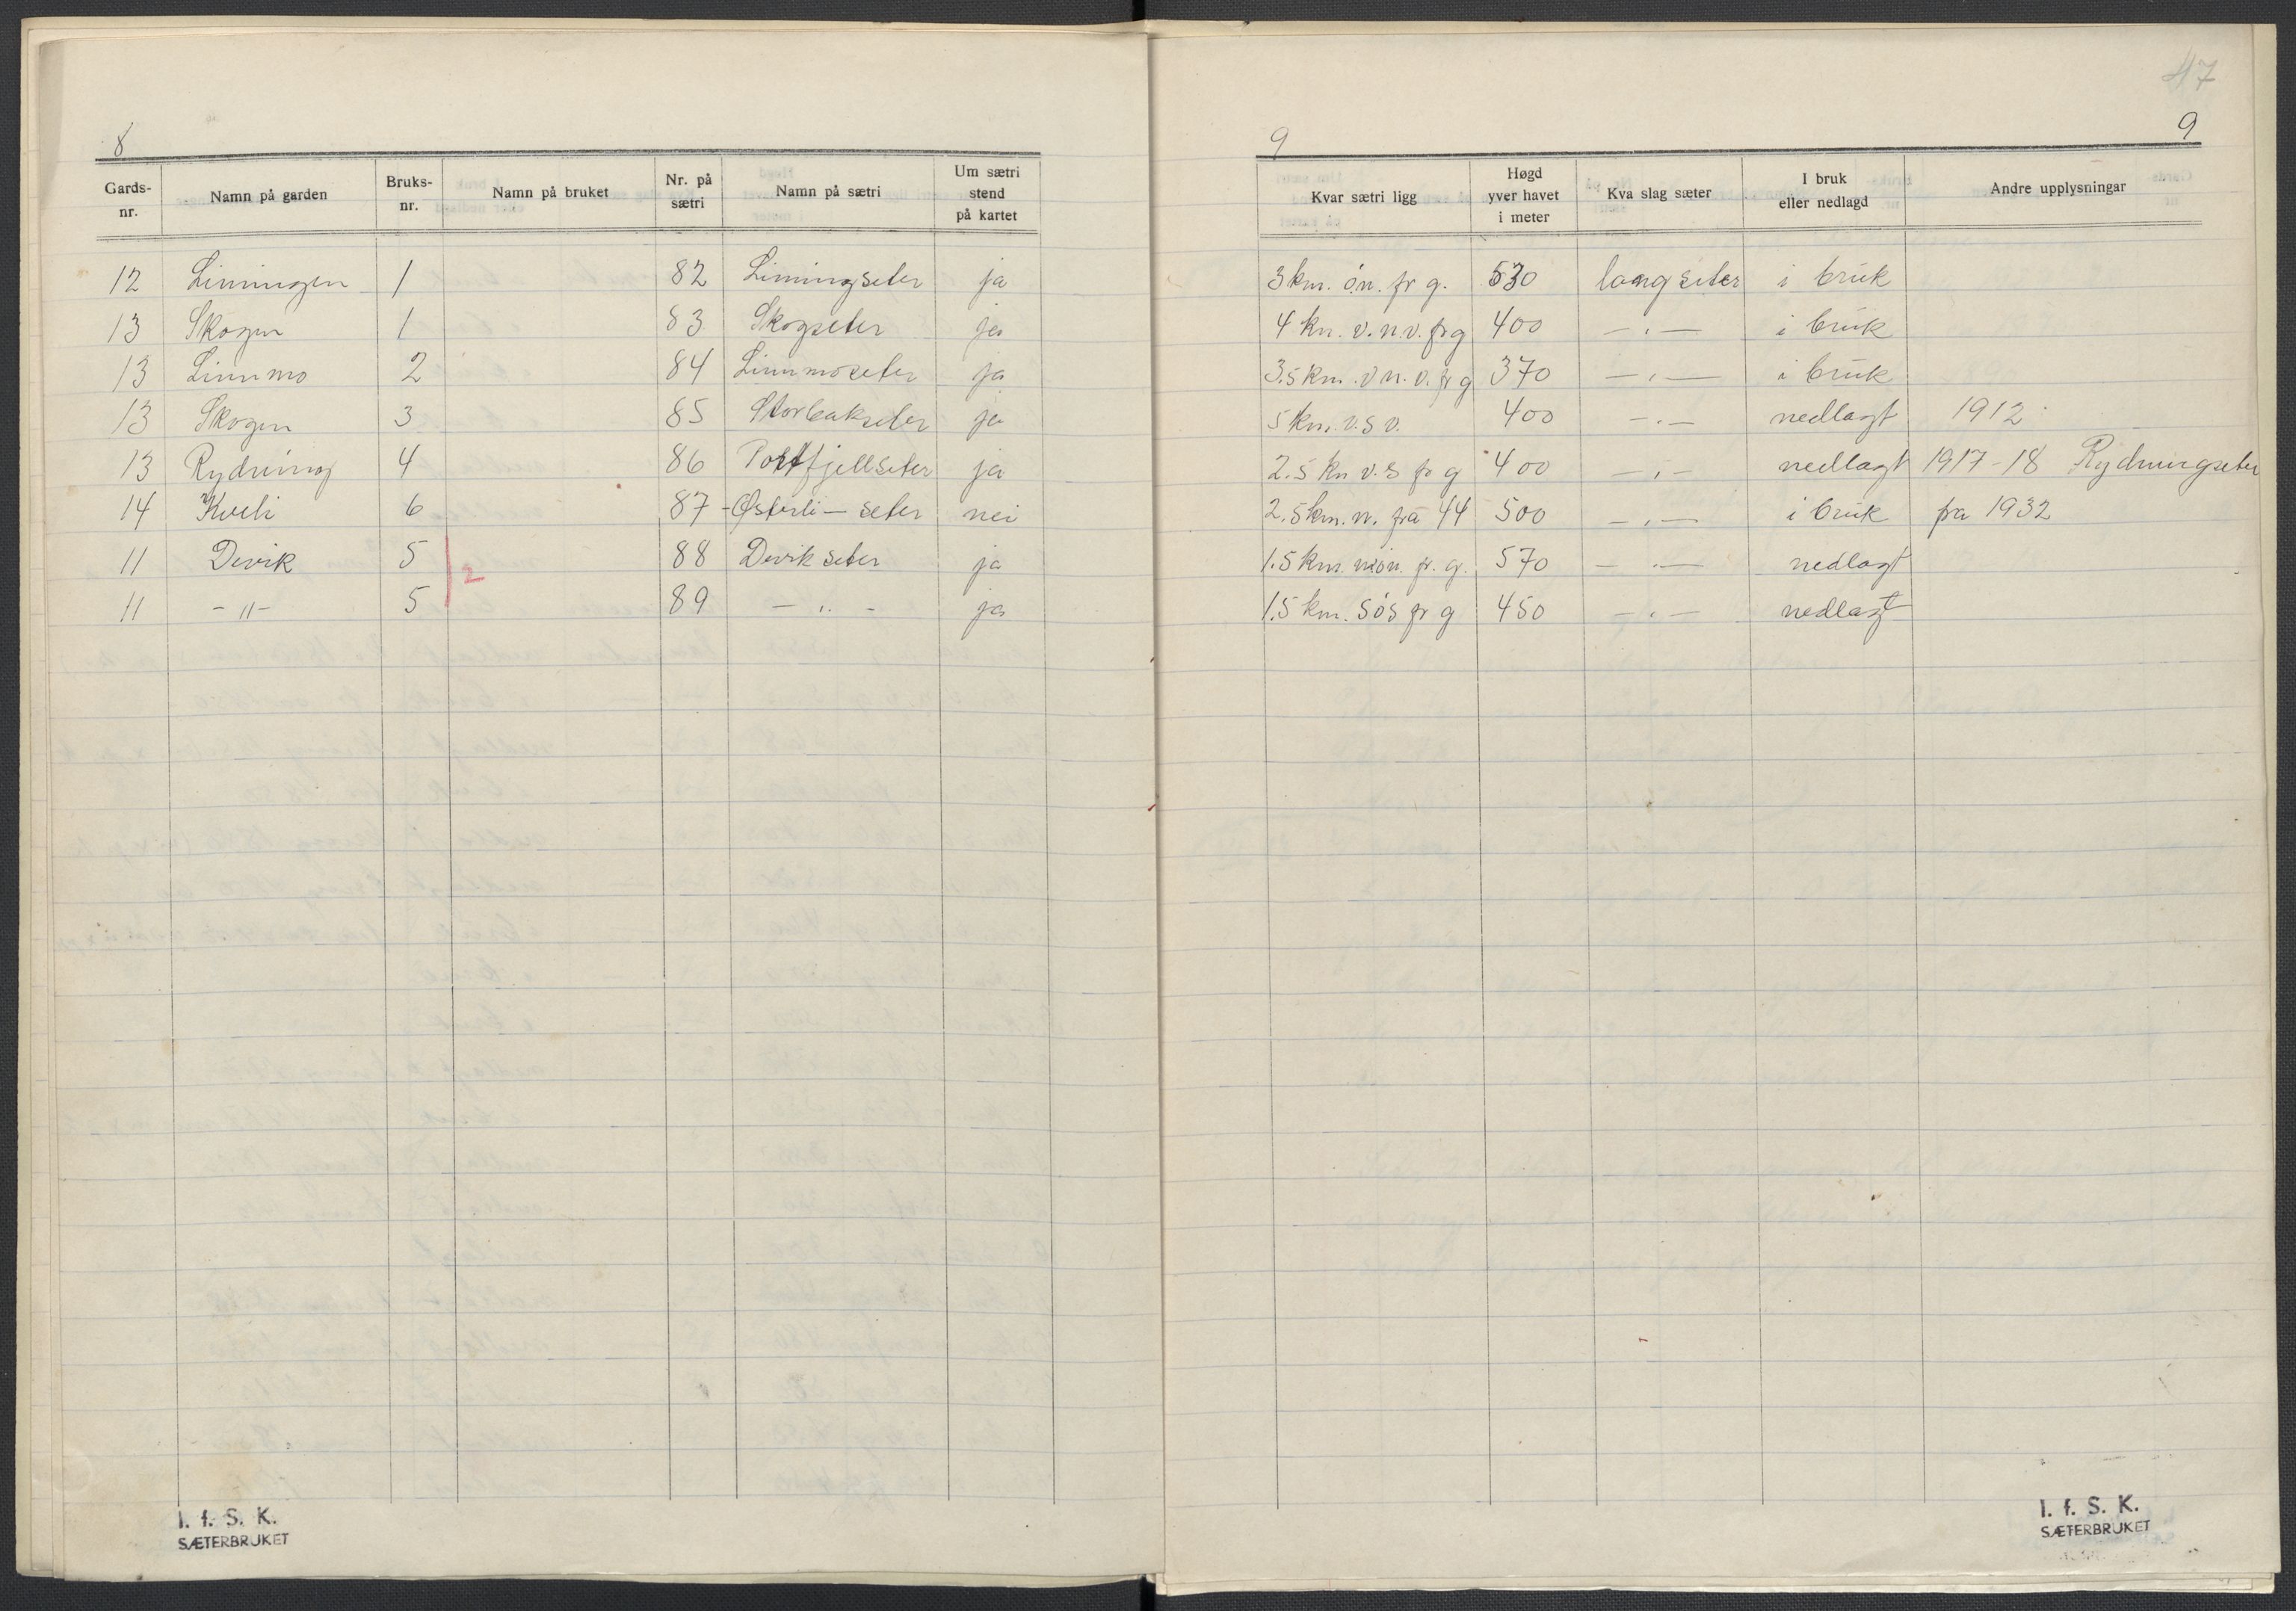 47
8
9
9
Gards-nr. Namn på garden Bruks-nr. Namn på bruket Nr. på sætri Namn på sætri Um sætri stend på kartet Kvar sætri ligg Høgd yver havet i meter Kva slag sæter I bruk eller nedlagd Andre upplysningar
12 Limingen 1 82 Limingseter ja 3 km. ön. fr g. 530 langseter i bruk
13 Skogen 1 83 Skogseter ja 4 km. v.n.v. fr g 400 -"- i bruk
13 Linnmo 2 84 Linnmoseter ja 3.5 km. v n. v. fr g 370 -"- i bruk
13 Skogen 3 85 Storbakseter ja 5 km. v.s v. 400 -"- nedlagt 1912
13 Rydning 4 86 Portfjellseter ja 2.5 km v.s fr g 400 -"- nedlagt 1917-18 Rydningseter
14 Kveli 6 87 -Østerli-seter nei 2.5 km. n. frå 44 500 -"- i bruk fra 1932
11 Devik 5 2 88 Devikseter ja 1.5 km. nön. fr. g. 570 -"- nedlagt
11 -"- 5 89 -"- ja 1.5 km. sös fr g 450 -"- nedlagt
I. f. S. K.
SÆTERBRUKET
I. f. S. K.
SÆTERBRUKET